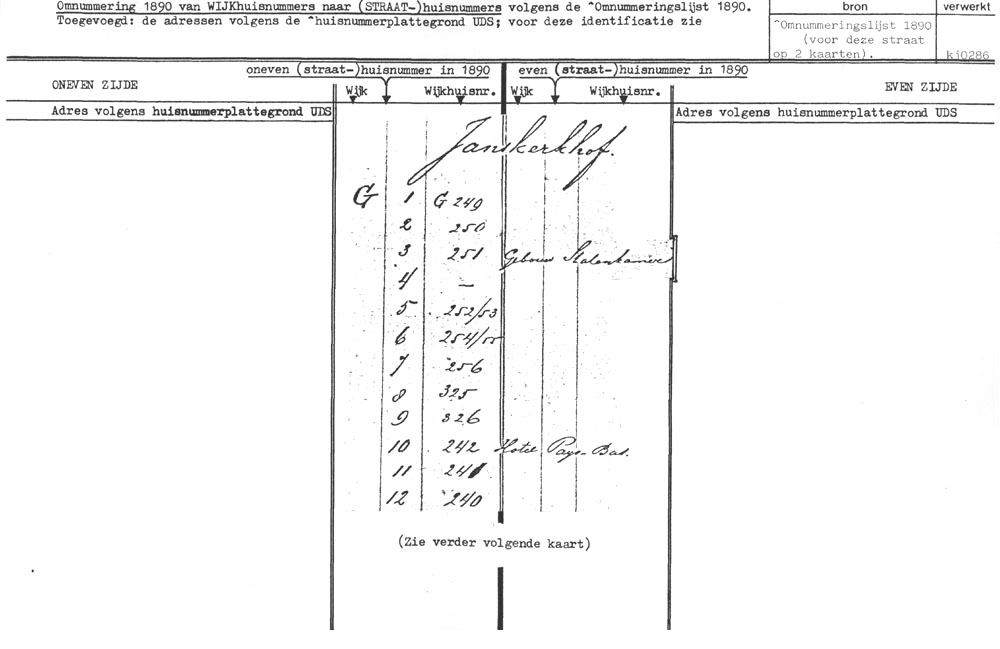 Omnummering 1890 van WIJKhuisnummers naar (STRAAT-)huisnummers volgens de ^Omnummeringslijst 1890.
Toegevoegd: de adressen volgens de ^huisnummerplattegrond UDS; voor deze identificatie zie
bron
verwerkt
^Omnummeringslijst 1890
(voor deze straat
op 2 kaarten).
kj0286
oneven (straat-)huisnummer in 1890
even (straat-)huisnummer in 1890
ONEVEN ZIJDE
Wijk
Wijkhuisnr.
Wijk
Wijkhuisnr.
EVEN ZIJDE
Adres volgens huisnummerplattegrond UDS
Adres volgens huisnummerplattegrond UDS
Janskerkhof.
G 1 G 249
2 250
3 251 Gebouw Statenkamer
4 —
5 252/53
6 254/55
7 256
8 325
9 326
10 242 Hotel Pays-Bas.
11 241
12 240
(Zie verder volgende kaart)